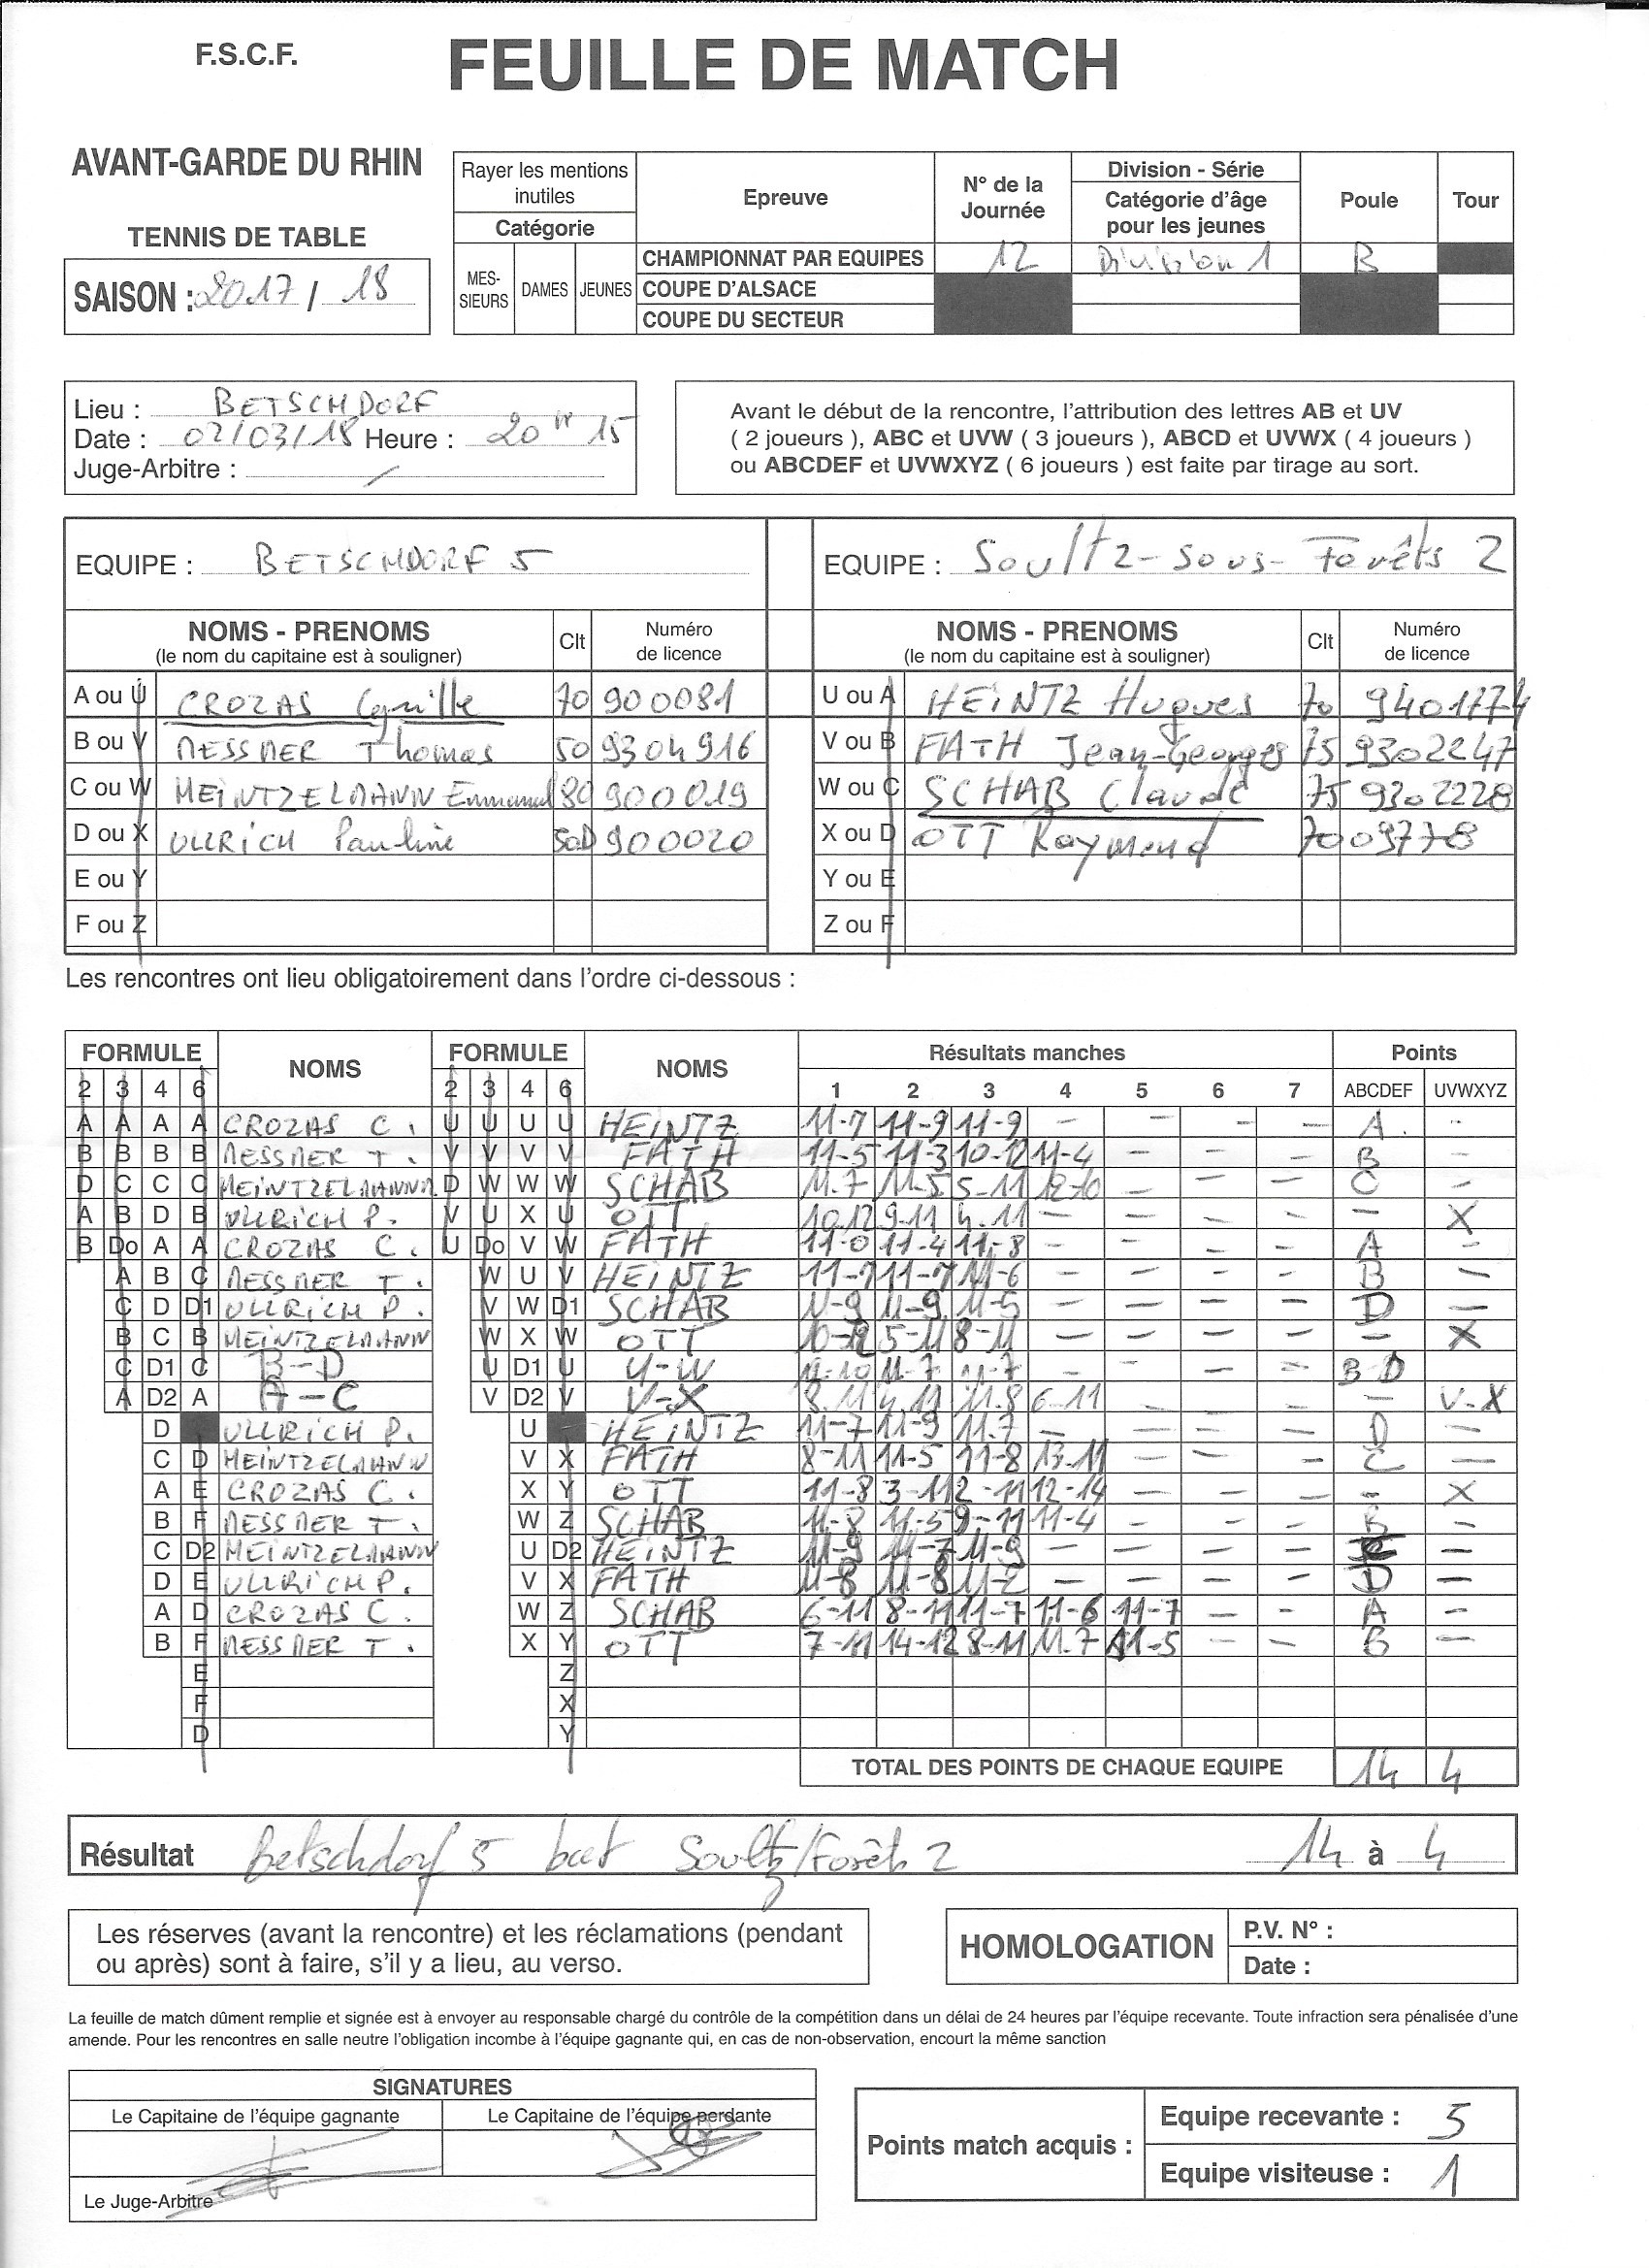 F.S.C.F.
FEUILLE DE MATCH
AVANT-GARDE DU RHIN
TENNIS DE TABLE
SAISON : 2017 / 18
Rayer les mentions inutiles
Catégorie
MES-SIEURS DAMES JEUNES
Epreuve
N° de la Journée
Division - Série
Catégorie d'âge pour les jeunes
Poule
Tour
CHAMPIONNAT PAR EQUIPES 12 Division 1 B
COUPE D'ALSACE
COUPE DU SECTEUR
Lieu : BETSCHDORF
Date : 02/03/18 Heure : 20H15
Juge-Arbitre : /
Avant le début de la rencontre, l'attribution des lettres AB et UV
( 2 joueurs ), ABC et UVW ( 3 joueurs ), ABCD et UVWX ( 4 joueurs )
ou ABCDEF et UVWXYZ ( 6 joueurs ) est faite par tirage au sort.
EQUIPE : BETSCHDORF 5
EQUIPE : Soultz-sous-Forêts 2
NOMS - PRENOMS (le nom du capitaine est à souligner) Clt Numéro de licence
NOMS - PRENOMS (le nom du capitaine est à souligner) Clt Numéro de licence
A ou U CROZAS Cyrille 70 900081 U ou A HEINTZ Hugues 70 9401774
B ou V MESSMER Thomas 50 9304916 V ou B FATH Jean-Georges 75 9302247
C ou W HEINTZELMANN Emmanuel 80 900019 W ou C SCHAB Claude 75 9302228
D ou X ULLRICH Pauline 50D 900020 X ou D OTT Raymond 70 09778
E ou Y Y ou E
F ou Z Z ou F
Les rencontres ont lieu obligatoirement dans l'ordre ci-dessous :
FORMULE NOMS FORMULE NOMS Résultats manches Points
2 3 4 6 2 3 4 6 1 2 3 4 5 6 7 ABCDEF UVWXYZ
A A A A CROZAS C. U U U U HEINTZ 11-7 11-9 11-9 - - - - A -
B B B B MESSMER T. V V V V FATH 11-5 11-3 10-12 11-4 - - - B -
D C C C HEINTZELMANN D W W W SCHAB 11-7 11-5 5-11 12-10 - - - C -
A B D B ULLRICH P. V U X U OTT 10-12 9-11 4-11 - - - - - X
B Do A A CROZAS C. U Do V W FATH 11-0 11-4 11-8 - - - - A -
A B C MESSMER T. W U V HEINTZ 11-7 11-7 11-6 - - - - B -
C D D1 ULLRICH P. V W D1 SCHAB 11-9 11-9 11-5 - - - - D -
B C B HEINTZELMANN W X W OTT 10-12 5-11 8-11 - - - - - X
C D1 C B-D U D1 U U-W 12-10 11-7 11-7 - - - - B D -
A D2 A A-C V D2 V V-X 8-11 4-11 11-8 6-11 - - - - V-X
D ULLRICH P. U HEINTZ 11-7 11-9 11-7 - - - - D -
C D HEINTZELMANN V X FATH 8-11 11-5 11-8 13-11 - - - C -
A E CROZAS C. X Y OTT 11-8 3-11 2-11 12-14 - - - - X
B F MESSMER T. W Z SCHAB 11-8 11-5 9-11 11-4 - - - B -
C D2 HEINTZELMANN U D2 HEINTZ 11-9 11-7 11-9 - - - - C -
D E ULLRICH P. V X FATH 11-8 11-8 11-2 - - - - D -
A D CROZAS C. W Z SCHAB 6-11 8-11 11-7 11-6 11-7 - - A -
B F MESSMER T. X Y OTT 7-11 14-12 8-11 11-7 11-5 - - B -
E Z
F X
D Y
TOTAL DES POINTS DE CHAQUE EQUIPE 14 4
Résultat Betschdorf 5 bat Soultz/Forêts 2 14 à 4
Les réserves (avant la rencontre) et les réclamations (pendant
ou après) sont à faire, s'il y a lieu, au verso.
HOMOLOGATION
P.V. N° :
Date :
La feuille de match dûment remplie et signée est à envoyer au responsable chargé du contrôle de la compétition dans un délai de 24 heures par l'équipe recevante. Toute infraction sera pénalisée d'une
amende. Pour les rencontres en salle neutre l'obligation incombe à l'équipe gagnante qui, en cas de non-observation, encourt la même sanction
SIGNATURES
Le Capitaine de l'équipe gagnante Le Capitaine de l'équipe perdante
Le Juge-Arbitre
Points match acquis :
Equipe recevante : 5
Equipe visiteuse : 1